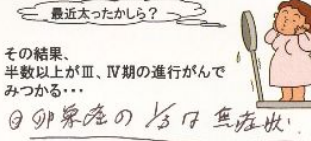 最近太ったかしら？
その結果、
半数以上がⅢ、Ⅳ期の進行がんで
みつかる・・・
卵巣症の 1/3 は 無症状.